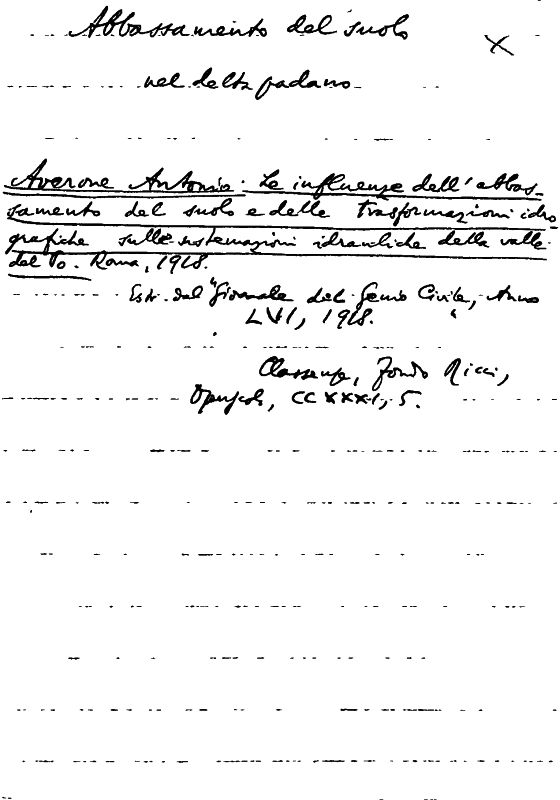 Abbassamento del suolo
X
nel delta padano
Averone Antonio. Le influenze dell'abbas-
samento del suolo e delle trasformazioni idro
grafiche sulle sistemazioni idrauliche della valle
del Po. Roma, 1918.
Estr. dal "Giornale del Genio Civile, Anno
LVI, 1918. "
Classense, Fondo Ricci,
Opuscoli, CCXXXI, 5.